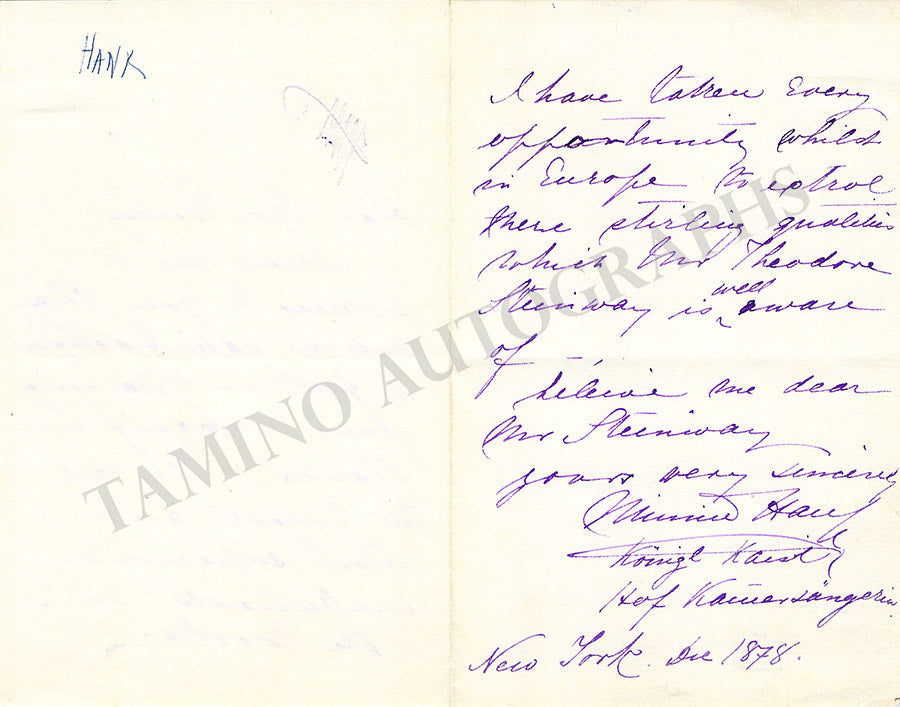 HANK
I have taken Every
opportunity whilst
in Europe to extrol
there stirling qualities
which Mr Theodore
Steinway is well aware
of —
believe me dear
Mr Steinway
yours very sincerely
Minnie Hauk
Königl Kaisl
Hof Kammersängerin
New York. Dec 1878.
TAMINO AUTOGRAPHS